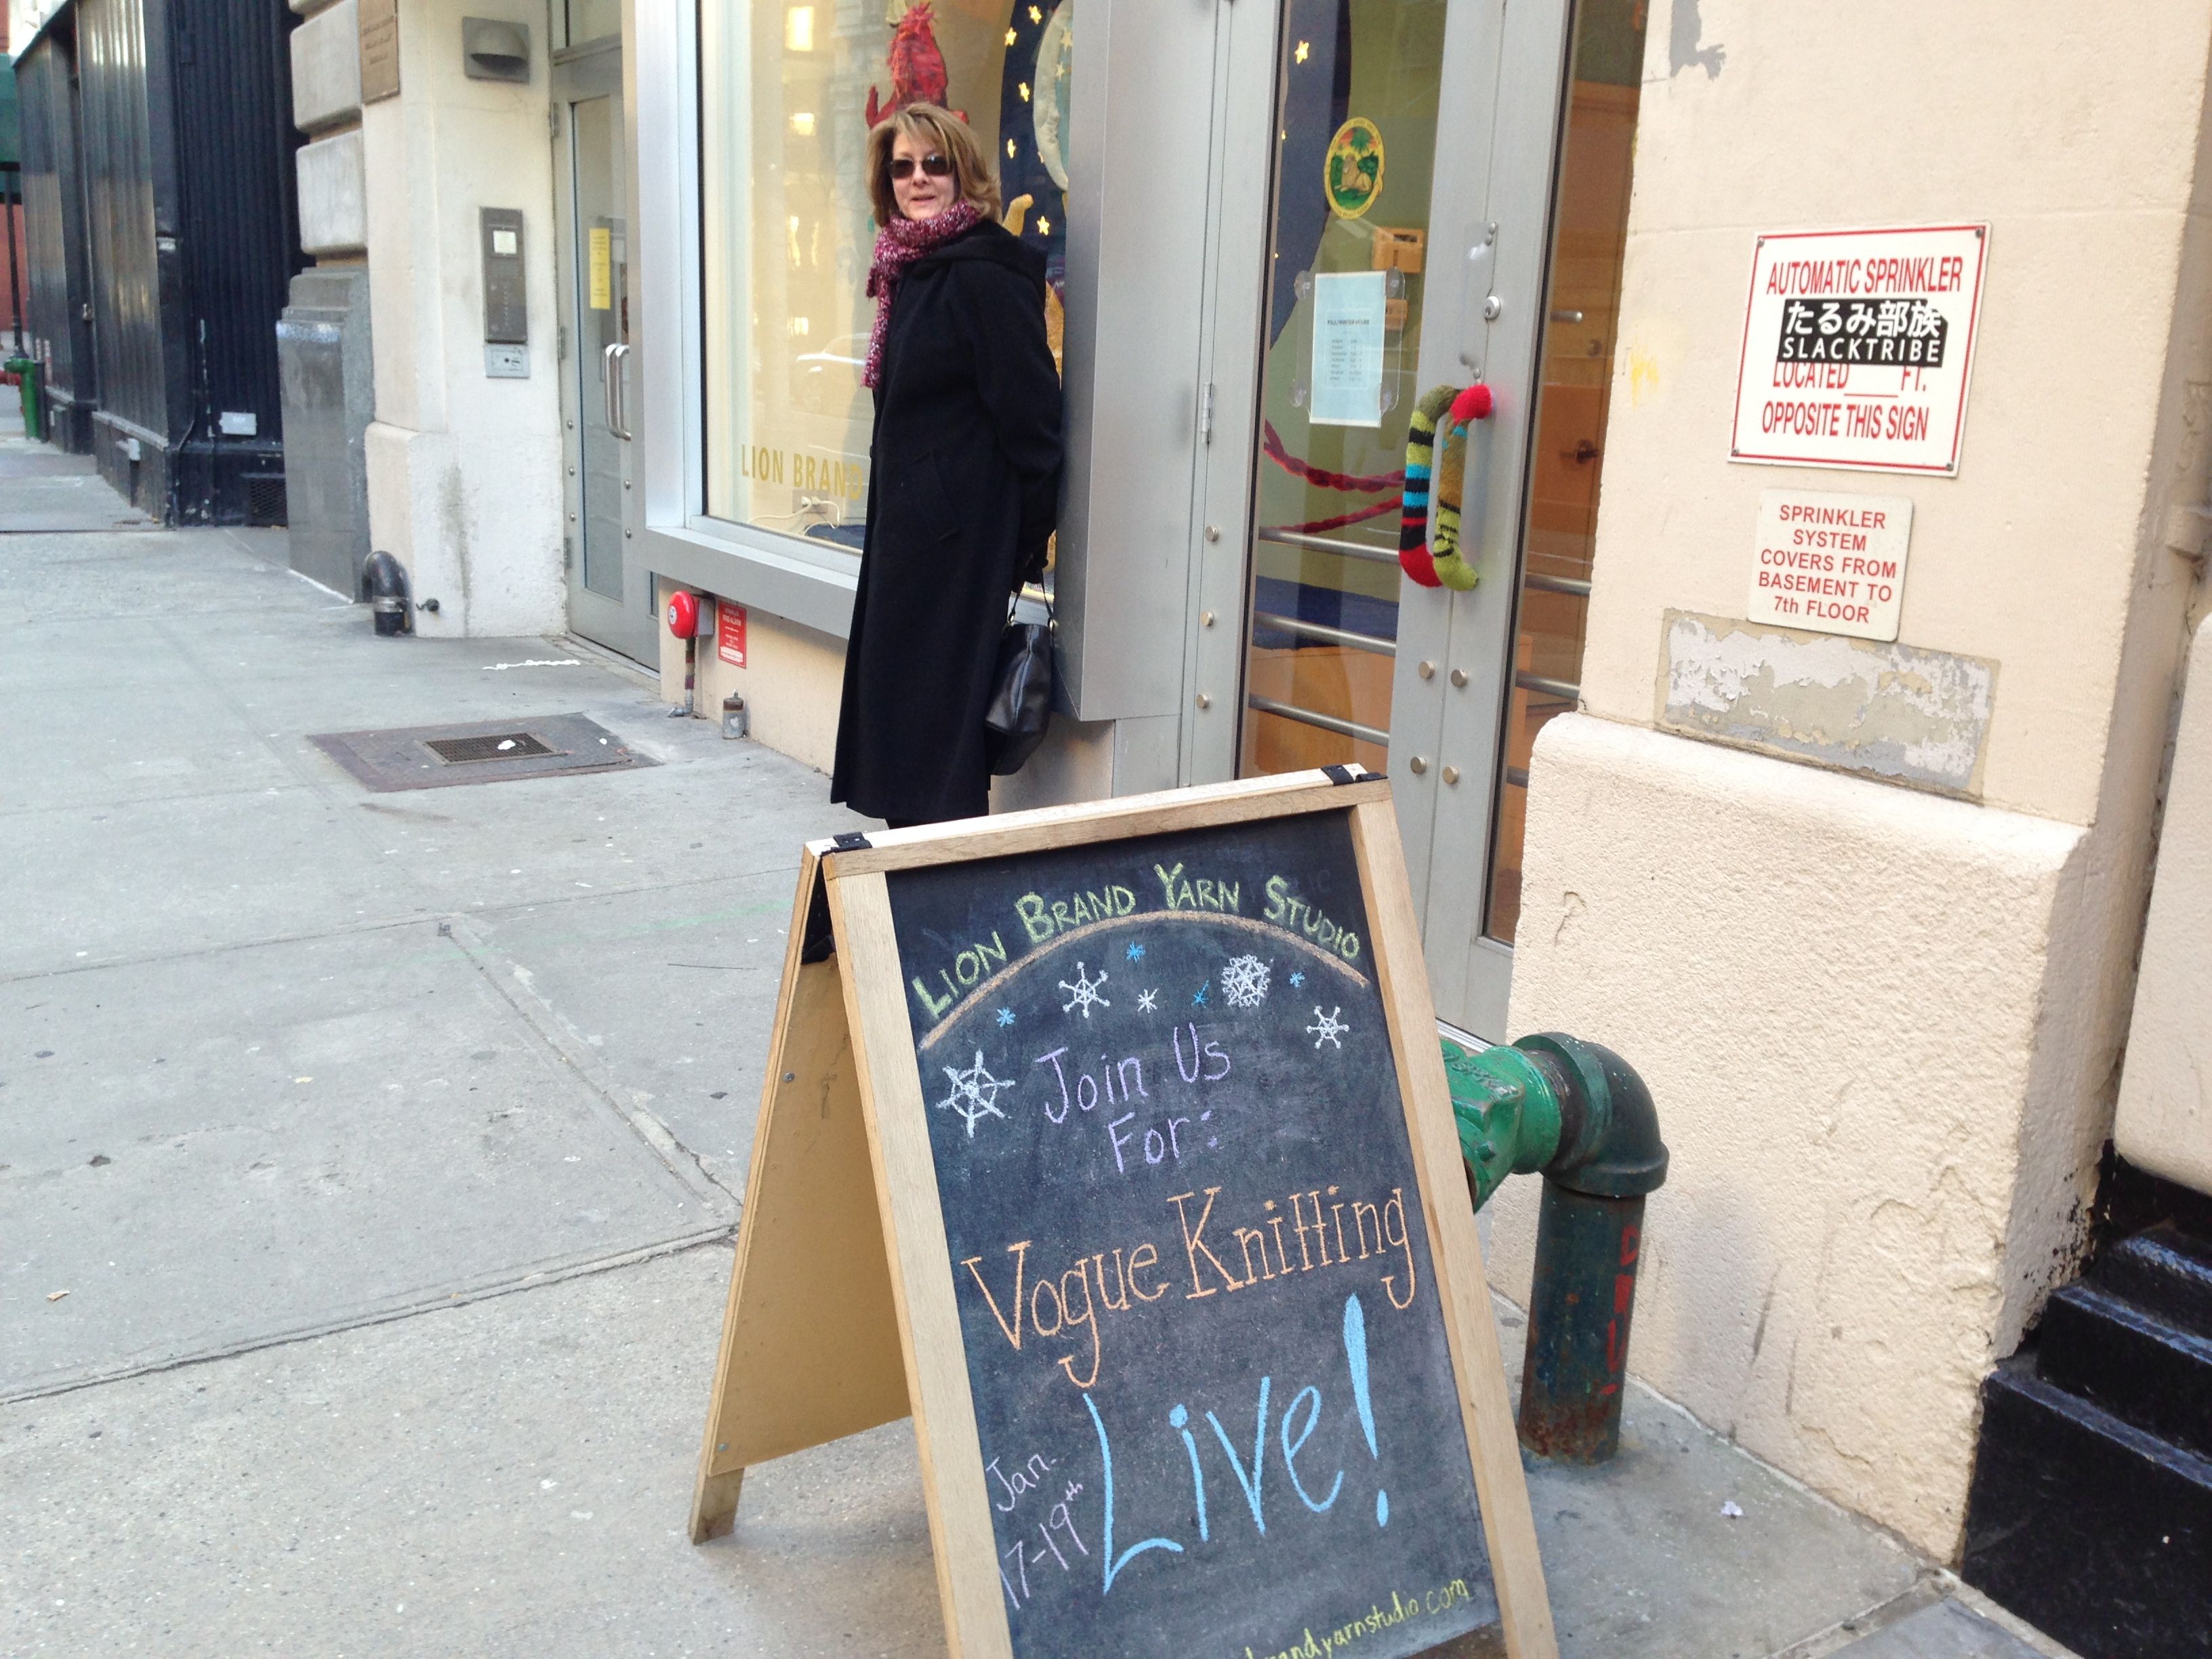 LION BRAND
AUTOMATIC SPRINKLER
たるみ部族
SLACKTRIBE
LOCATED____FT.
OPPOSITE THIS SIGN
SPRINKLER
SYSTEM
COVERS FROM
BASEMENT TO
7th FLOOR
LION BRAND YARN STUDIO
Join Us
For:
Vogue Knitting
Live!
Jan.
17-19th
brandyarnstudio.com